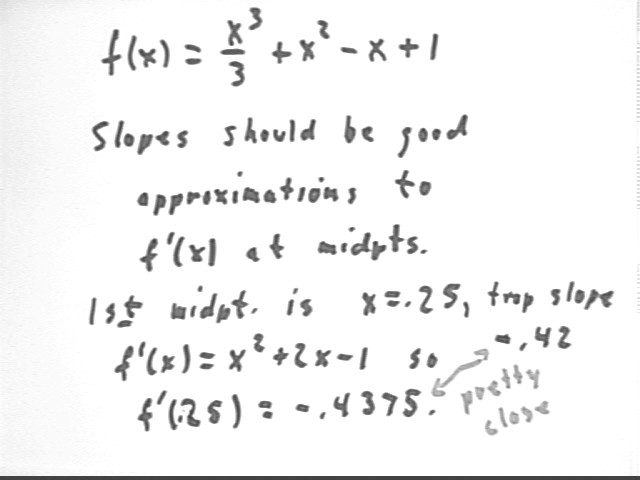 f(x) = x³/3 + x² - x + 1
Slopes should be good
approximations to
f'(x) at midpts.
1st midpt. is x=.25, trap slope
-.42
f'(x) = x² + 2x - 1 so
f'(.25) = -.4375.
pretty
close